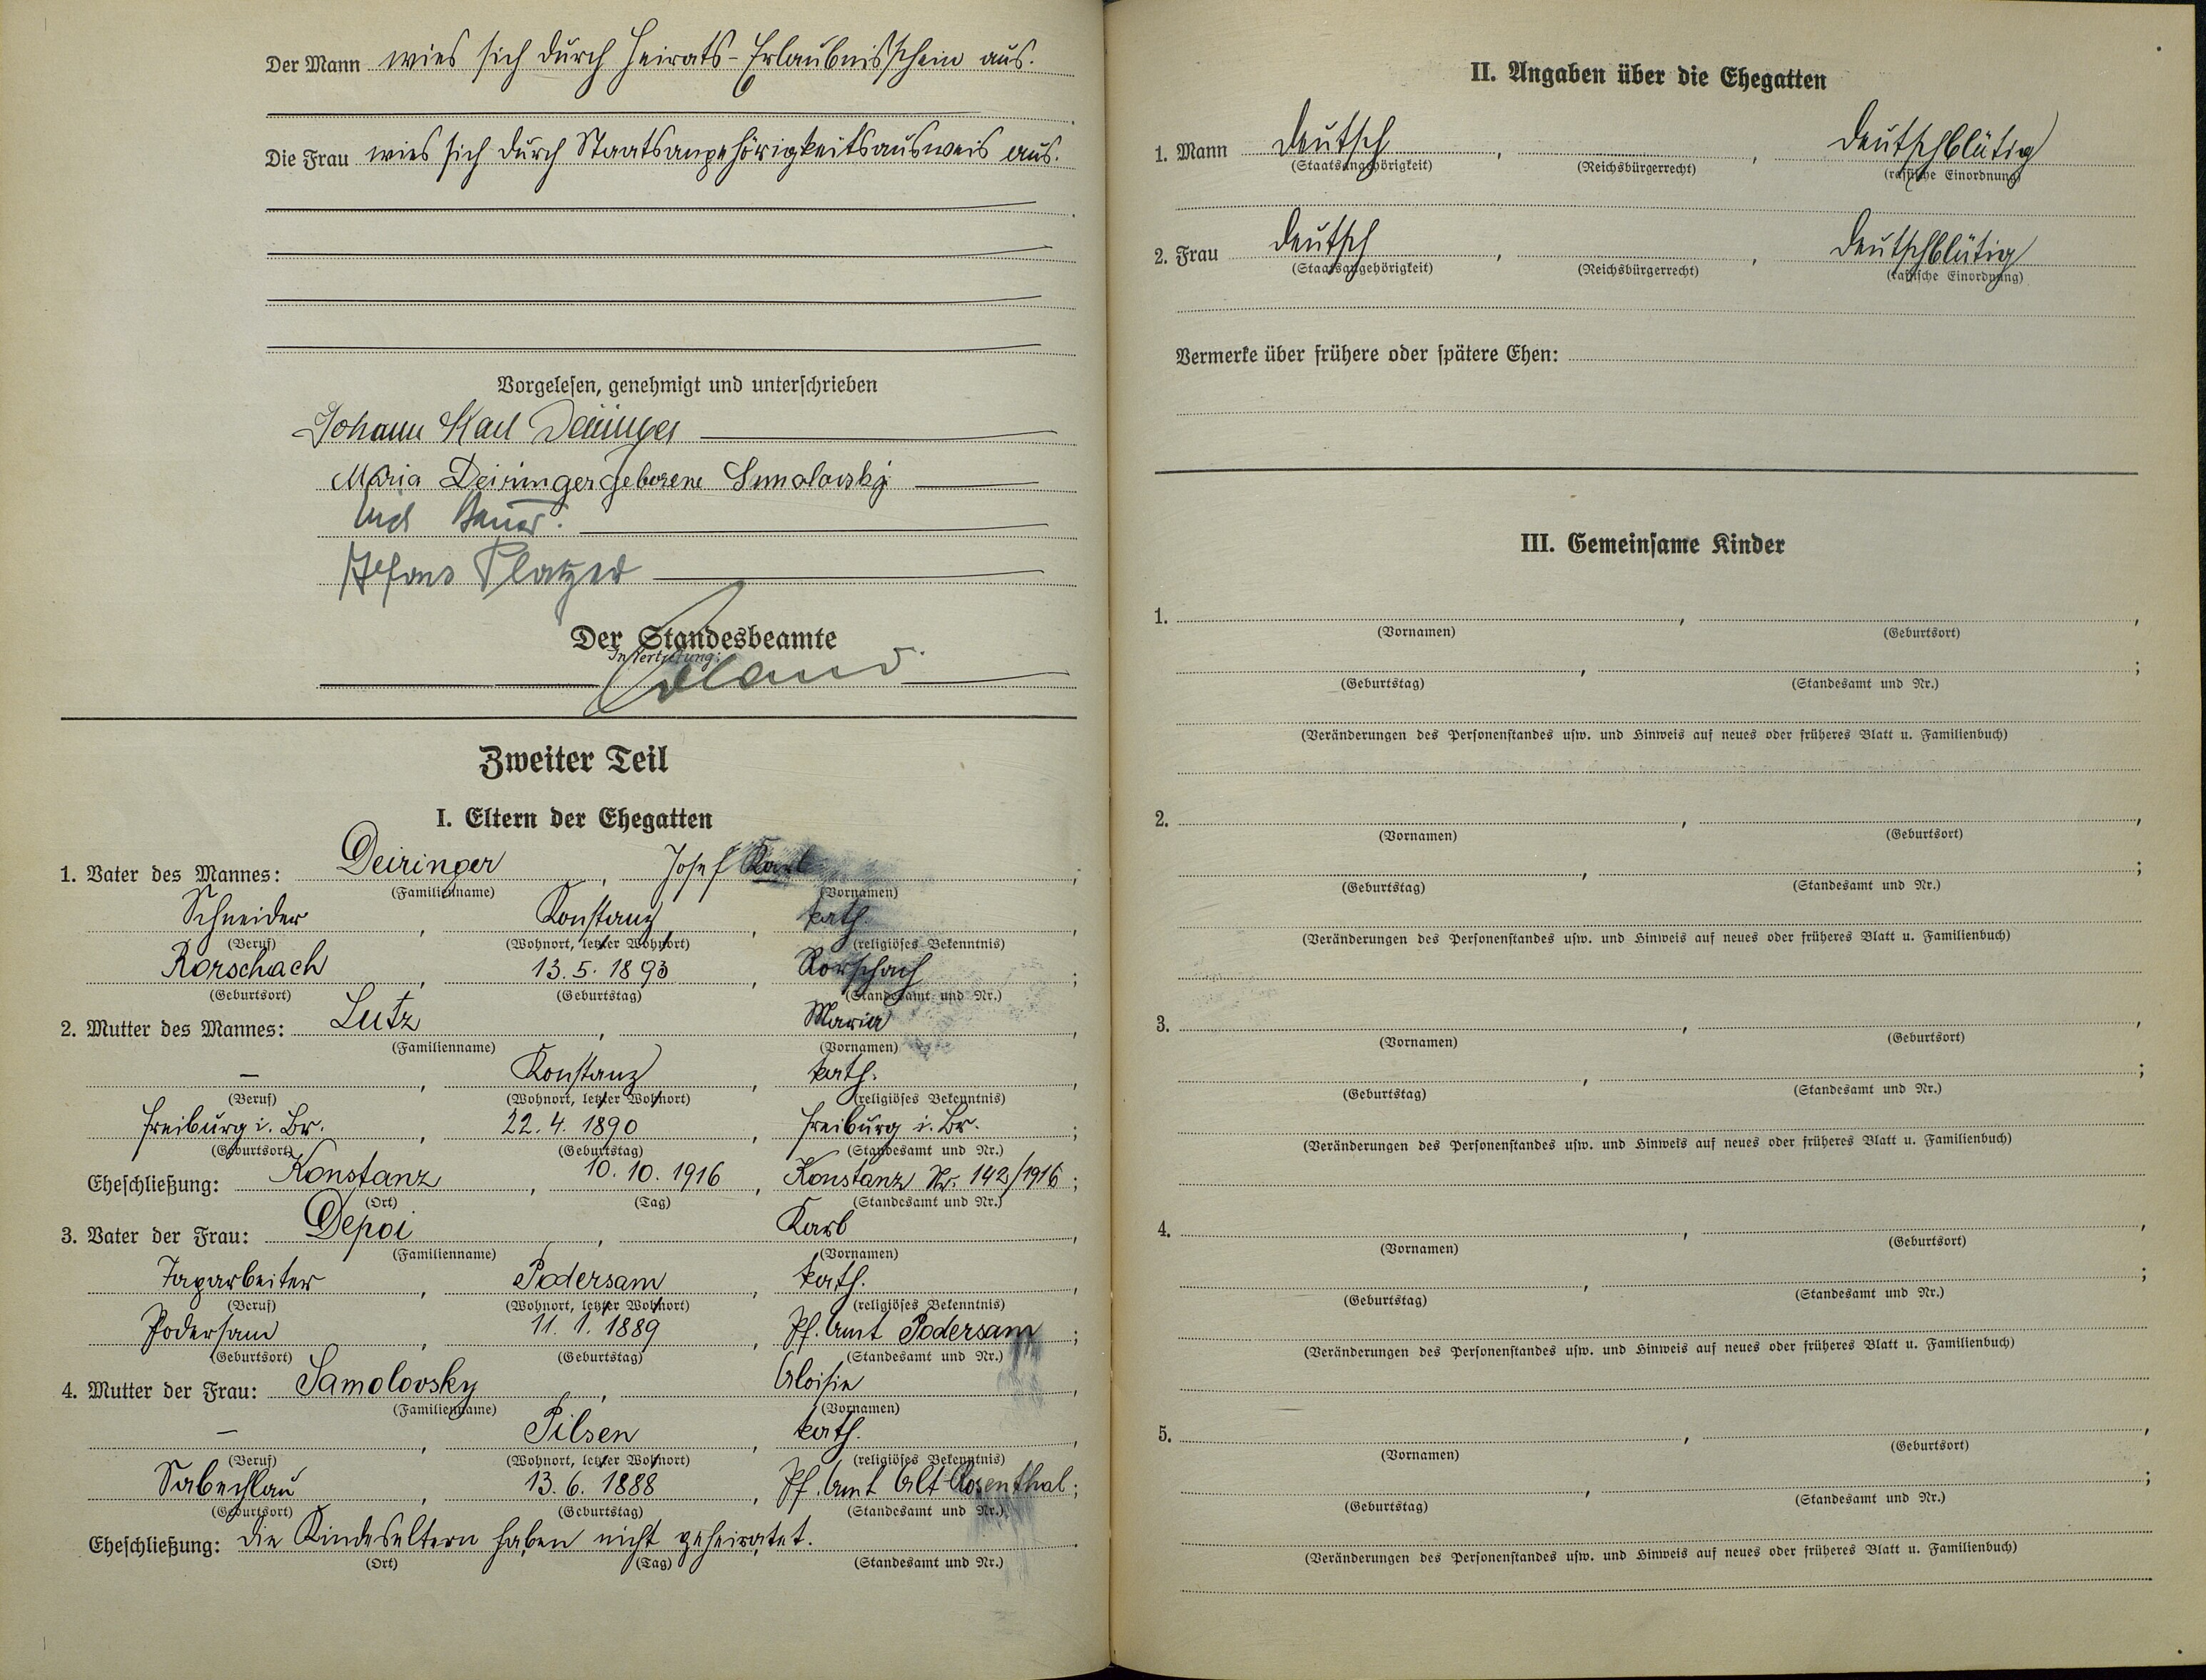 Der Mann wies sich durch Heirats-Erlaubnisschein aus.
Die Frau wies sich durch Staatsangehörigkeitsausweis aus.
Vorgelesen, genehmigt und unterschrieben
Johann Karl Deiringer
Maria Deiringer geborene Samolovsky
Platzer
Der Standesbeamte
In Vertretung:
Zweiter Teil
I. Eltern der Ehegatten
1. Vater des Mannes: Deiringer, Josef Karl,
(Familienname) (Vornamen)
Schneider, Konstanz, kath.,
(Beruf) (Wohnort, letzter Wohnort) (religiöses Bekenntnis)
Rorschach, 13.5.1893, Rorschach;
(Geburtsort) (Geburtstag) (Standesamt und Nr.)
2. Mutter des Mannes: Lutz, Maria,
(Familienname) (Vornamen)
–, Konstanz, kath.,
(Beruf) (Wohnort, letzter Wohnort) (religiöses Bekenntnis)
Freiburg i. Br., 22.4.1890, Freiburg i. Br.;
(Geburtsort) (Geburtstag) (Standesamt und Nr.)
Eheschließung: Konstanz, 10.10.1916, Konstanz Nr. 142/1916;
(Ort) (Tag) (Standesamt und Nr.)
3. Vater der Frau: Depoi, Karl,
(Familienname) (Vornamen)
Tagarbeiter, Podersam, kath.,
(Beruf) (Wohnort, letzter Wohnort) (religiöses Bekenntnis)
Podersam, 11.1.1889, Pf. Amt Podersam;
(Geburtsort) (Geburtstag) (Standesamt und Nr.)
4. Mutter der Frau: Samolovsky, Aloisia,
(Familienname) (Vornamen)
–, Pilsen, kath.,
(Beruf) (Wohnort, letzter Wohnort) (religiöses Bekenntnis)
13.6.1888, Pf. Amt Alt Rosenthal;
(Geburtsort) (Geburtstag) (Standesamt und Nr.)
Eheschließung: die Kindeseltern haben nicht geheiratet.
(Ort) (Tag) (Standesamt und Nr.)
II. Angaben über die Ehegatten
1. Mann deutsch, , deutschblütig
(Staatsangehörigkeit) (Reichsbürgerrecht) (rassische Einordnung)
2. Frau deutsch, , deutschblütig
(Staatsangehörigkeit) (Reichsbürgerrecht) (rassische Einordnung)
Vermerke über frühere oder spätere Ehen:
III. Gemeinsame Kinder
1. , ,
(Vornamen) (Geburtsort)
, ;
(Geburtstag) (Standesamt und Nr.)
(Veränderungen des Personenstandes usw. und Hinweis auf neues oder früheres Blatt u. Familienbuch)
2. , ,
(Vornamen) (Geburtsort)
, ;
(Geburtstag) (Standesamt und Nr.)
(Veränderungen des Personenstandes usw. und Hinweis auf neues oder früheres Blatt u. Familienbuch)
3. , ,
(Vornamen) (Geburtsort)
, ;
(Geburtstag) (Standesamt und Nr.)
(Veränderungen des Personenstandes usw. und Hinweis auf neues oder früheres Blatt u. Familienbuch)
4. , ,
(Vornamen) (Geburtsort)
, ;
(Geburtstag) (Standesamt und Nr.)
(Veränderungen des Personenstandes usw. und Hinweis auf neues oder früheres Blatt u. Familienbuch)
5. , ,
(Vornamen) (Geburtsort)
, ;
(Geburtstag) (Standesamt und Nr.)
(Veränderungen des Personenstandes usw. und Hinweis auf neues oder früheres Blatt u. Familienbuch)